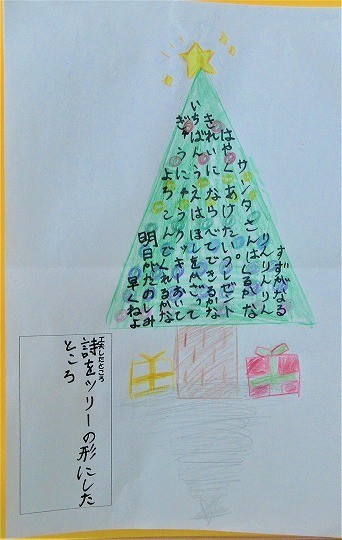 すずがなる
りんりんりん
サンタさんはくるかな
はやくあけたいプレゼント
きれいにならべてできるかな
いちばんうえはほしをかざって
ぎゅうにゅうクッキーおいて
よろこんでくれるかな
明日がたのしみ
早くねよ
工夫したところ
詩をツリーの形にした
ところ